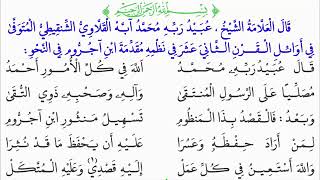 بِسْمِ اللَّهِ الرَّحْمَنِ الرَّحِيمِ
قَالَ الْعَلَّامَةُ الشَّيْخُ، عُبَيْدُ رَبِّهِ مُحَمَّدُ ابُّهُ الْقَلَّاوِيُّ الشَّنْقِيطِيُّ الْمُتَوَفَّى
فِي أَوَائِلِ الْقَرْنِ الثَّانِي عَشَرَ فِي نَظْمِهِ مُقَدِّمَةَ ابْنِ آجُرُّومَ فِي النَّحْوِ:
قَالَ عُبَيْدُ رَبِّهِ مُحَمَّدُ اللَّهَ فِي كُلِّ الْأُمُورِ أَحْمَدُ
مُصَلِّيًا عَلَى الرَّسُولِ الْمُنْتَقَى وَآلِهِ وَصَحْبِهِ ذَوِي التُّقَى
وَبَعْدُ: فَالْقَصْدُ بِذَا الْمَنْظُومِ تَسْهِيلُ مَنْثُورِ ابْنِ آجُرُّومِ
لِمَنْ أَرَادَ حِفْظَهُ وَعَسُرَا عَلَيْهِ أَنْ يَحْفَظَ مَا قَدْ نُثِرَا
وَاللَّهَ أَسْتَعِينُ فِي كُلِّ عَمَلْ إِلَيْهِ قَصْدِي وَعَلَيْهِ الْمُتَّكَلْ